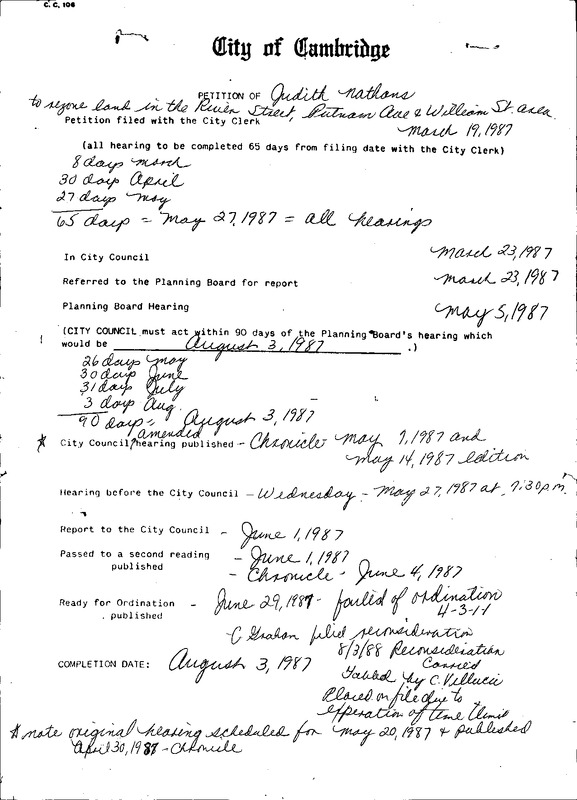 C.C. 106
City of Cambridge
PETITION OF Judith Nathans
to rezone land in the River Street, Putnam Ave & William St. area.
Petition filed with the City Clerk
March 19, 1987
(all hearing to be completed 65 days from filing date with the City Clerk)
8 days march
30 days April
27 days may
65 days = May 27, 1987 = all hearings
In City Council March 23, 1987
Referred to the Planning Board for report March 23, 1987
Planning Board Hearing May 5, 1987
(CITY COUNCIL must act within 90 days of the Planning Board's hearing which
would be August 3, 1987 .)
26 days may
30 days June
31 days July
3 days Aug.
90 days = August 3, 1987
amended
* City Council hearing published - Chronicle May 7, 1987 and
May 14, 1987 edition
Hearing before the City Council - Wednesday - May 27, 1987 at 7:30 p.m.
Report to the City Council - June 1, 1987
Passed to a second reading - June 1, 1987
published - Chronicle - June 4, 1987
Ready for Ordination - June 29, 1987 - failed of ordination
. published 4-3-1-1
C Graham filed reconsideration
8/3/88 Reconsideration
Carried
COMPLETION DATE: August 3, 1987
Tabled by C. Vellucci
Placed on file due to
operation of time limit
* note original hearing scheduled for May 20, 1987 & published
April 30, 1987 - Chronicle